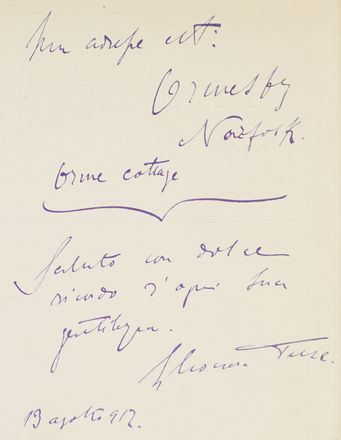 mon adresse est:
Ormesby
Norfolk.
Orme cottage
Saluto con dolce
ricordo d'ogni Sua
gentilezza.
Eleonora Duse.
13 agosto 912.